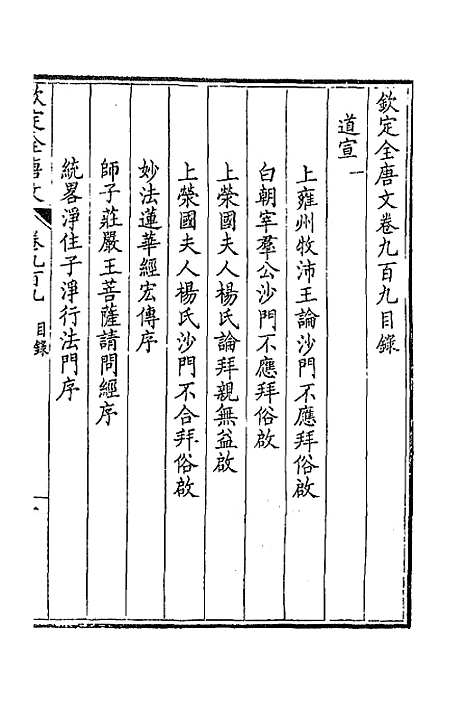 欽定全唐文卷九百九目錄
道宣一
上雍州牧沛王論沙門不應拜俗啟
白朝宰羣公沙門不應拜俗啟
上榮國夫人楊氏論拜親無益啟
上榮國夫人楊氏沙門不合拜俗啟
妙法蓮華經宏傳序
師子莊嚴王菩薩請問經序
統畧淨住子淨行法門序
欽定全唐文 卷九百九 目錄 一